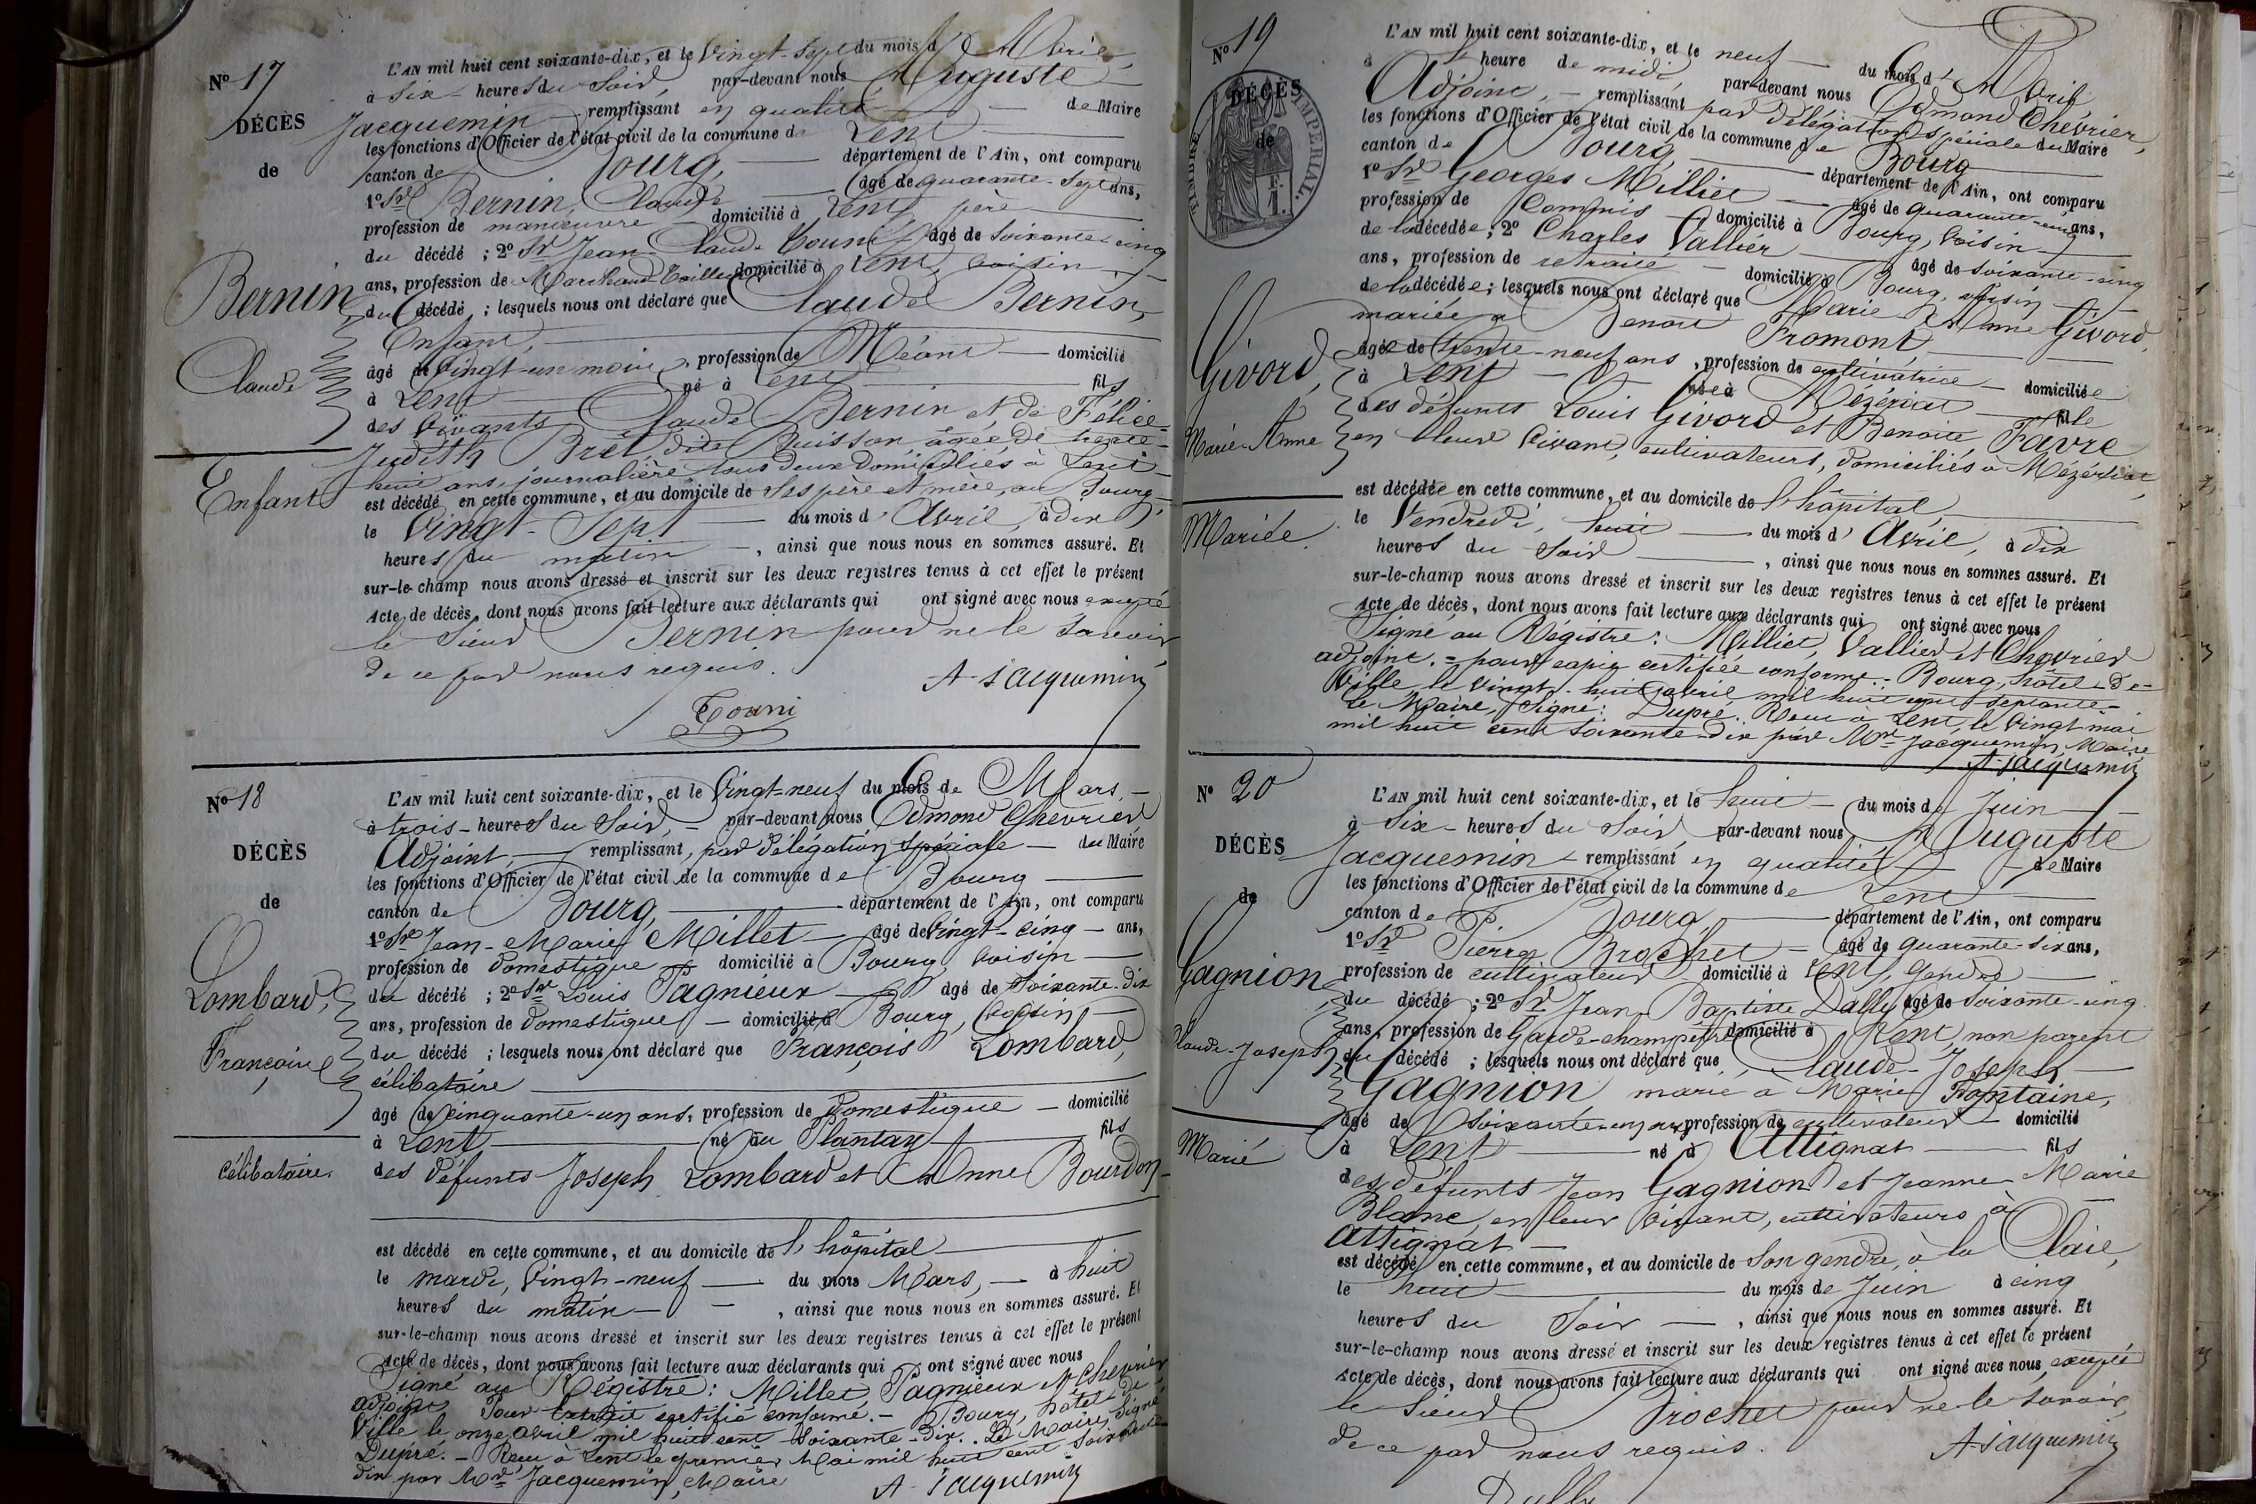 No 17
DÉCÈS
de
Bernin
Claude
Enfant
L'AN mil huit cent soixante-dix, et le vingt-sept du mois d'Avril,
à six heures du soir, par-devant nous Auguste
Jacquemin remplissant en qualité de Maire
les fonctions d'Officier de l'état civil de la commune de Lent
canton de Bourg, département de l'Ain, ont comparu
1º Sr Bernin, Claude âgé de quarante-sept ans,
profession de manœuvre domicilié à Lent, père
du décédé ; 2º Sr Jean Claude Tourni âgé de soixante-cinq
ans, profession de Marchand Tailleur domicilié à Lent, voisin
du décédé ; lesquels nous ont déclaré que Claude Bernin,
Enfant,
âgé de vingt-un mois, profession de Néant domicilié
à Lent né à Lent fils
des vivants Claude Bernin et de Félice-
Judith Brêt, dite Buisson âgée de trente-
huit ans, journalière tous deux domiciliés à Lent
est décédé en cette commune, et au domicile de ses père et mère, au Bourg,
le vingt-sept du mois d'Avril, à dix
heures du matin, ainsi que nous nous en sommes assuré. Et
sur-le-champ nous avons dressé et inscrit sur les deux registres tenus à cet effet le présent
Acte de décès, dont nous avons fait lecture aux déclarants qui ont signé avec nous excepté
le sieur Bernin pour ne le savoir
de ce par nous requis.
A. Jacquemin
Tourni
No 18
DÉCÈS
de
Lombard,
François
célibataire.
L'AN mil huit cent soixante-dix, et le vingt-neuf du mois de Mars,
à trois heures du soir, par-devant nous Edmond Chevrier
Adjoint, remplissant, par délégation spéciale du Maire
les fonctions d'Officier de l'état civil de la commune de Bourg
canton de Bourg, département de l'Ain, ont comparu
1º Sr Jean-Marie Millet âgé de vingt-cinq ans,
profession de domestique domicilié à Bourg, voisin
du décédé ; 2º Sr Louis Pagnieux âgé de soixante-dix
ans, profession de domestique domicilié à Bourg, voisin
du décédé ; lesquels nous ont déclaré que François Lombard,
célibataire
âgé de cinquante-un ans, profession de domestique domicilié
à Lent né au Plantay fils
des défunts Joseph Lombard et Anne Bourdon
est décédé en cette commune, et au domicile de l'hôpital
le mardi, vingt-neuf du mois Mars, à huit
heures du matin, ainsi que nous nous en sommes assuré. Et
sur-le-champ nous avons dressé et inscrit sur les deux registres tenus à cet effet le présent
Acte de décès, dont nous avons fait lecture aux déclarants qui ont signé avec nous
Signé au Régistre : Millet, Pagnieux et Chevrier
adjoint. Pour Extrait certifié conforme. - Bourg, hôtel-de-
Ville le onze avril mil huit cent soixante-dix. Le Maire, Signé
Dupré. - Reçu à Lent le premier Mai mil huit cent soixante-
dix par Mr Jacquemin, Maire
A. Jacquemin
No 19
DÉCÈS
de
TIMBRE IMPÉRIAL.
1 F.
Givord,
Marie-Anne
Mariée.
L'AN mil huit cent soixante-dix, et le neuf du mois d'Avril,
à heure de midi par-devant nous Edmond Chevrier,
Adjoint, remplissant par délégation spéciale du Maire
les fonctions d'Officier de l'état civil de la commune de Bourg
canton de Bourg, département de l'Ain, ont comparu
1º Sr Georges Milliet âgé de quarante-cinq ans,
profession de Commis domicilié à Bourg, voisin
de la décédée ; 2º Charles Vallier âgé de soixante-cinq
ans, profession de retraité domicilié à Bourg, voisin
de la décédée ; lesquels nous ont déclaré que Marie Anne Givord,
mariée à Benoit Fromont
âgée de trente-neuf ans, profession de cultivatrice domiciliée
à Lent née à Mézériat fille
des défunts Louis Givord et Benoite Favre
en leur vivant, cultivateurs, domiciliés à Mézériat,
est décédée en cette commune, et au domicile de l'hôpital,
le Vendredi, huit du mois d'Avril, à dix
heures du soir, ainsi que nous nous en sommes assuré. Et
sur-le-champ nous avons dressé et inscrit sur les deux registres tenus à cet effet le présent
Acte de décès, dont nous avons fait lecture aux déclarants qui ont signé avec nous
Signé au Régistre : Milliet, Vallier et Chevrier
adjoint. = pour copie certifiée conforme. - Bourg, hôtel-de-
Ville, le vingt-huit avril mil huit cent septante-
le Maire, Signé : Dupré. Reçu à Lent, le vingt mai
mil huit cent soixante-dix par Mr Jacquemin, Maire
A. Jacquemin
No 20
DÉCÈS
de
Gagnion
Claude-Joseph
Marié
L'AN mil huit cent soixante-dix, et le huit du mois de Juin
à six heures du soir, par-devant nous Auguste
Jacquemin remplissant en qualité de Maire
les fonctions d'Officier de l'état civil de la commune de Lent
canton de Bourg, département de l'Ain, ont comparu
1º Sr Pierre Brochet âgé de quarante-six ans,
profession de cultivateur domicilié à Lent, Gendre
du décédé ; 2º Sr Jean Baptiste Dally âgé de soixante-cinq
ans, profession de Garde-champêtre domicilié à Lent, non parent
du décédé ; lesquels nous ont déclaré que Claude-Joseph
Gagnion marié à Marie Fontaine,
âgé de soixante-un ans profession de cultivateur domicilié
à Lent né à Attignat fils
des défunts Jean Gagnion et Jeanne Marie
Blanc, en leur vivant, cultivateurs à
Attignat
est décédé en cette commune, et au domicile de son gendre, à la Claie,
le huit du mois de Juin à cinq
heures du soir, ainsi que nous nous en sommes assuré. Et
sur-le-champ nous avons dressé et inscrit sur les deux registres tenus à cet effet le présent
Acte de décès, dont nous avons fait lecture aux déclarants qui ont signé avec nous, excepté
le sieur Brochet pour ne le savoir
de ce par nous requis.
A. Jacquemin
Dally